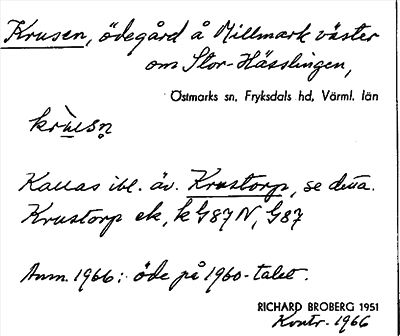 Krusen, ödegård å Millmark väster
om Stor-Hässlingen,
Östmarks sn, Fryksdals hd, Värml. län
krùsn̥
Kallas ibl. äv. Krustorp, se detta.
Krustorp ek, k G87N, G87
Anm. 1966: öde på 1960-talet.
RICHARD BROBERG 1951
Kontr. 1966